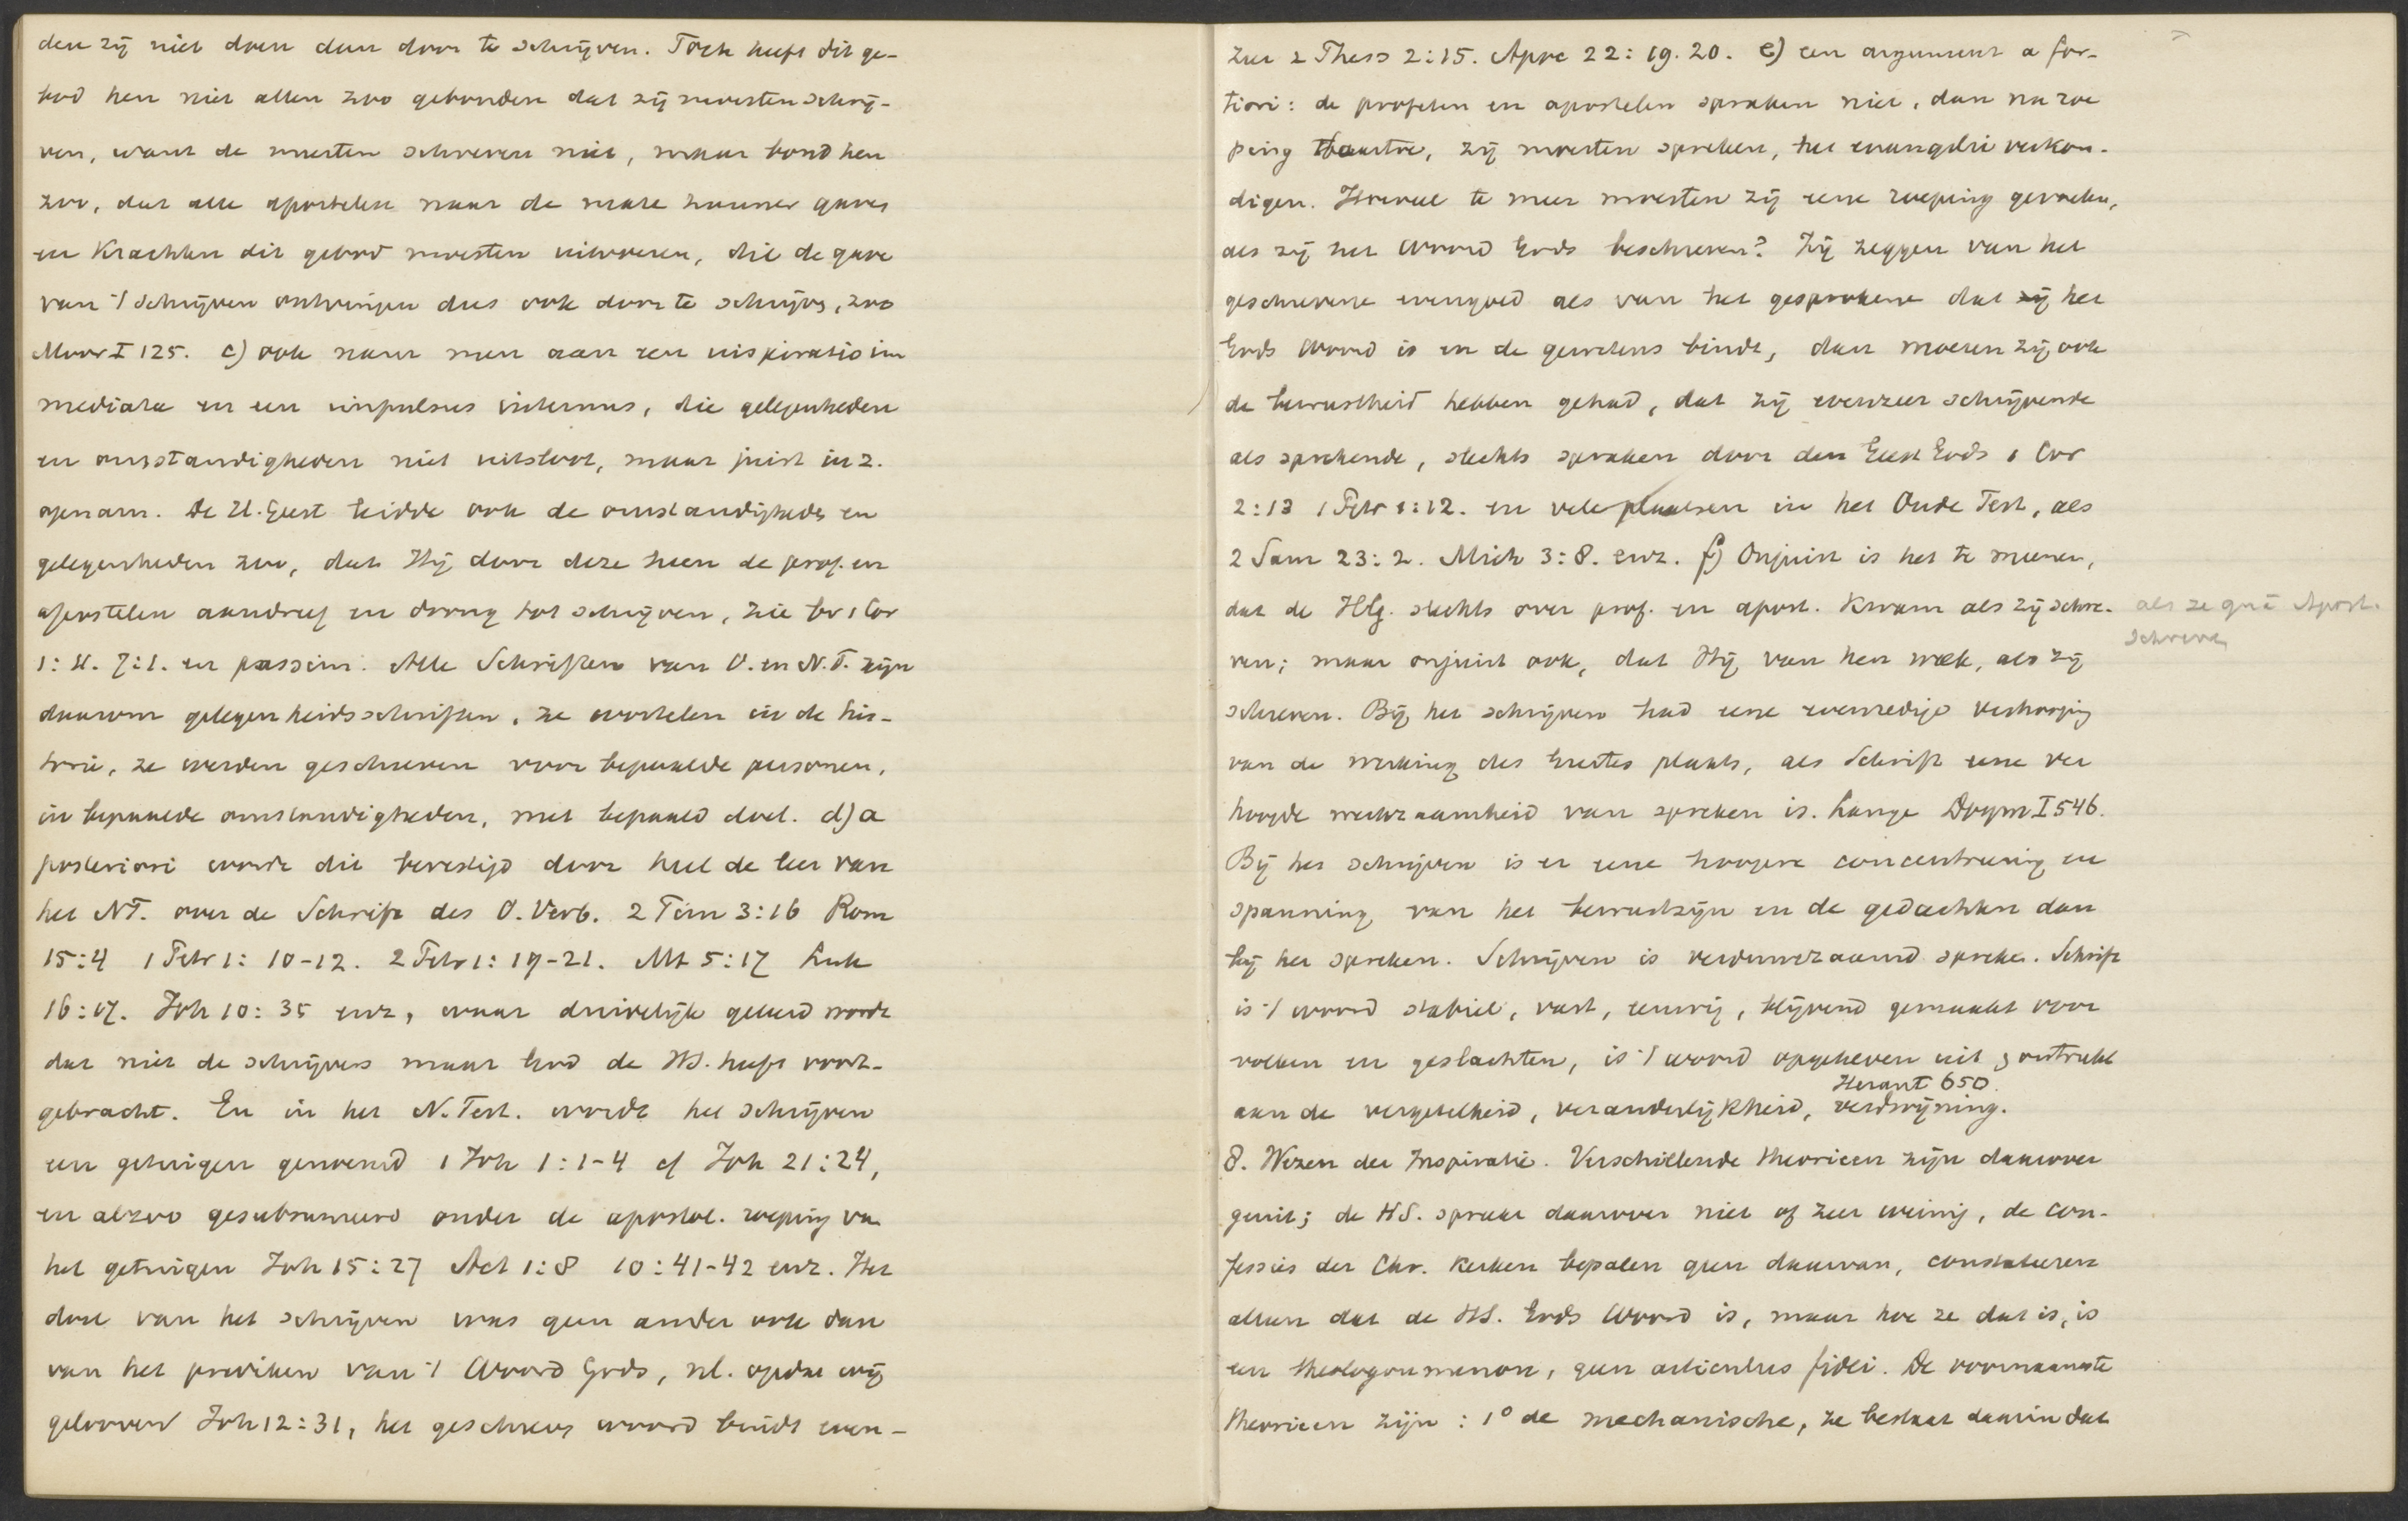 den zij niet doen dan door te schrijven. Toch heeft dit ge-
bod hen niet allen zoo gebonden dat zij moesten schrij-
ven, want de meesten schreven niet, maar bond hen
zoo, dat alle apostelen naar de mate hunner gaven
en Krachten dit gebod moesten uitvoeren, die de gave
van 't schrijven ontvingen dus ook door te schrijven, zoo
Moor I 125. c) ook neme men aan een inspiratio im
mediata en een impulsus internus, die gelegenheden
en omstandigheden niet uitsloot, maar juist in z.
opnam. De H. Geest leidde ook de omstandigheden en
gelegenheden zoo, dat Hij door deze heen de prof. en
apostelen aandreef en drong tot schrijven, zie bv 1 Cor
1:11. 7:1. en passim. Alle Schriften van O. en N.T. zijn
daarom gelegenheidsschriften, ze wortelen in de his-
torie, ze werden geschreven voor bepaalde personen,
in bepaalde omstandigheden, met bepaald doel. d) a
posteriori wordt dit bevestigd door heel de leer van
het NT. over de Schrift des O. Verb. 2 Tim 3:16 Rom
15:4 1 Petr 1: 10-12. 2 Petr 1: 19-21. Mt 5:17 Luk
16:17. Joh 10: 35 enz, waar duidelijk geleerd wordt
dat niet de schrijvers maar God de HS. heeft voort-
gebracht. En in het N. Test. wordt het schrijven
een getuigen genoemd 1 Joh 1:1-4 cf Joh 21:24,
en alzoo gesubsumeerd onder de apostol. roeping van
het getuigen Joh 15:27 Act 1:8 10:41-42 enz. Het
doel van het schrijven was geen ander ook dan
van het prediken van 't Woord Gods, nl. opdat wij
gelooven Joh 12:31, het geschreven woord bindt even-
zeer 2 Thess 2:15. Apoc 22: 19. 20. e) een argument a for-
tiori: de profeten en apostelen spraken niet, dan na roe
ping daartoe, zij moesten spreken, het evangelie verkon-
digen. Hoeveel te meer moesten zij eene roeping gevoelen,
als zij het Woord Gods beschreven? Zij zeggen van het
geschrevene evengoed als van het gesprokene dat het
Gods Woord is en de gewetens bindt, dan moeten zij ook
de bewustheid hebben gehad, dat zij evenzeer schrijvende
als sprekende, slechts spraken door den Geest Gods 1 Cor
2:13 1 Petr 1:12. en vele plaatsen in het Oude Test, als
2 Sam 23: 2. Mich 3:8. enz. f) Onjuist is het te meenen,
dat de HG. slechts over prof. en apost. Kwam als zij schre- als ze quâ Apost.
schreven
ven; maar onjuist ook, dat Hij van hen week, als zij
schreven. Bij het schrijven had eene evenredige verhooging
van de werking des Geestes plaats, als Schrift eene ver
hoogde werkzaamheid van spreken is. Lange Dogm I 546.
Bij het schrijven is er eene hoogere concentreering en
spanning van het bewustzijn en de gedachten dan
bij het spreken. Schrijven is verduurzaamd spreken. Schrift
is 't woord stabiel, vast, eeuwig, blijvend gemaakt voor
volken en geslachten, is 't woord opgeheven uit en ontrukt
Heraut 650.
aan de vergetelheid, veranderlijkheid, verdwijning.
8. Wezen der Inspiratie. Verschillende theorieen zijn daarover
geuit; de HS. spreekt daarover niet of zeer weinig, de con-
fessies der Chr. Kerken bepalen geen daarvan, constateeren
alleen dat de HS. Gods Woord is, maar hoe ze dat is, is
een theologoumenon, geen articulus fidei. De voornaamste
theorieen zijn: 1° de mechanische, ze bestaat daarin dat